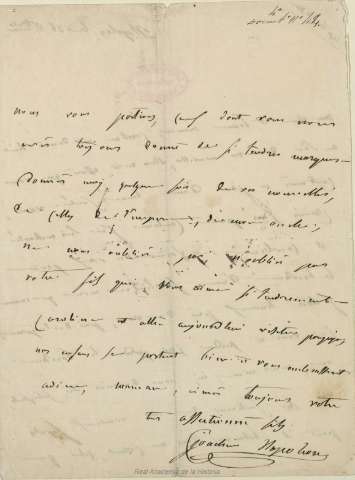 nous vous portons, et dont vous nous
avés toujours donné de si tendres marques
donnés moi quelque fois de vos nouvelles,
de celles de l'empereur, de mon oncle,
ne nous oubliés pas n'oubliés pas
votre fils qui vous aime si tendrement
Caroline est allée aujourd'hui visiter
nos enfans se portent bien et vous embrassent
adieu, maman, aimés toujours votre
très affectionné fils
Joachim Napoléon
Real Academia de la Historia